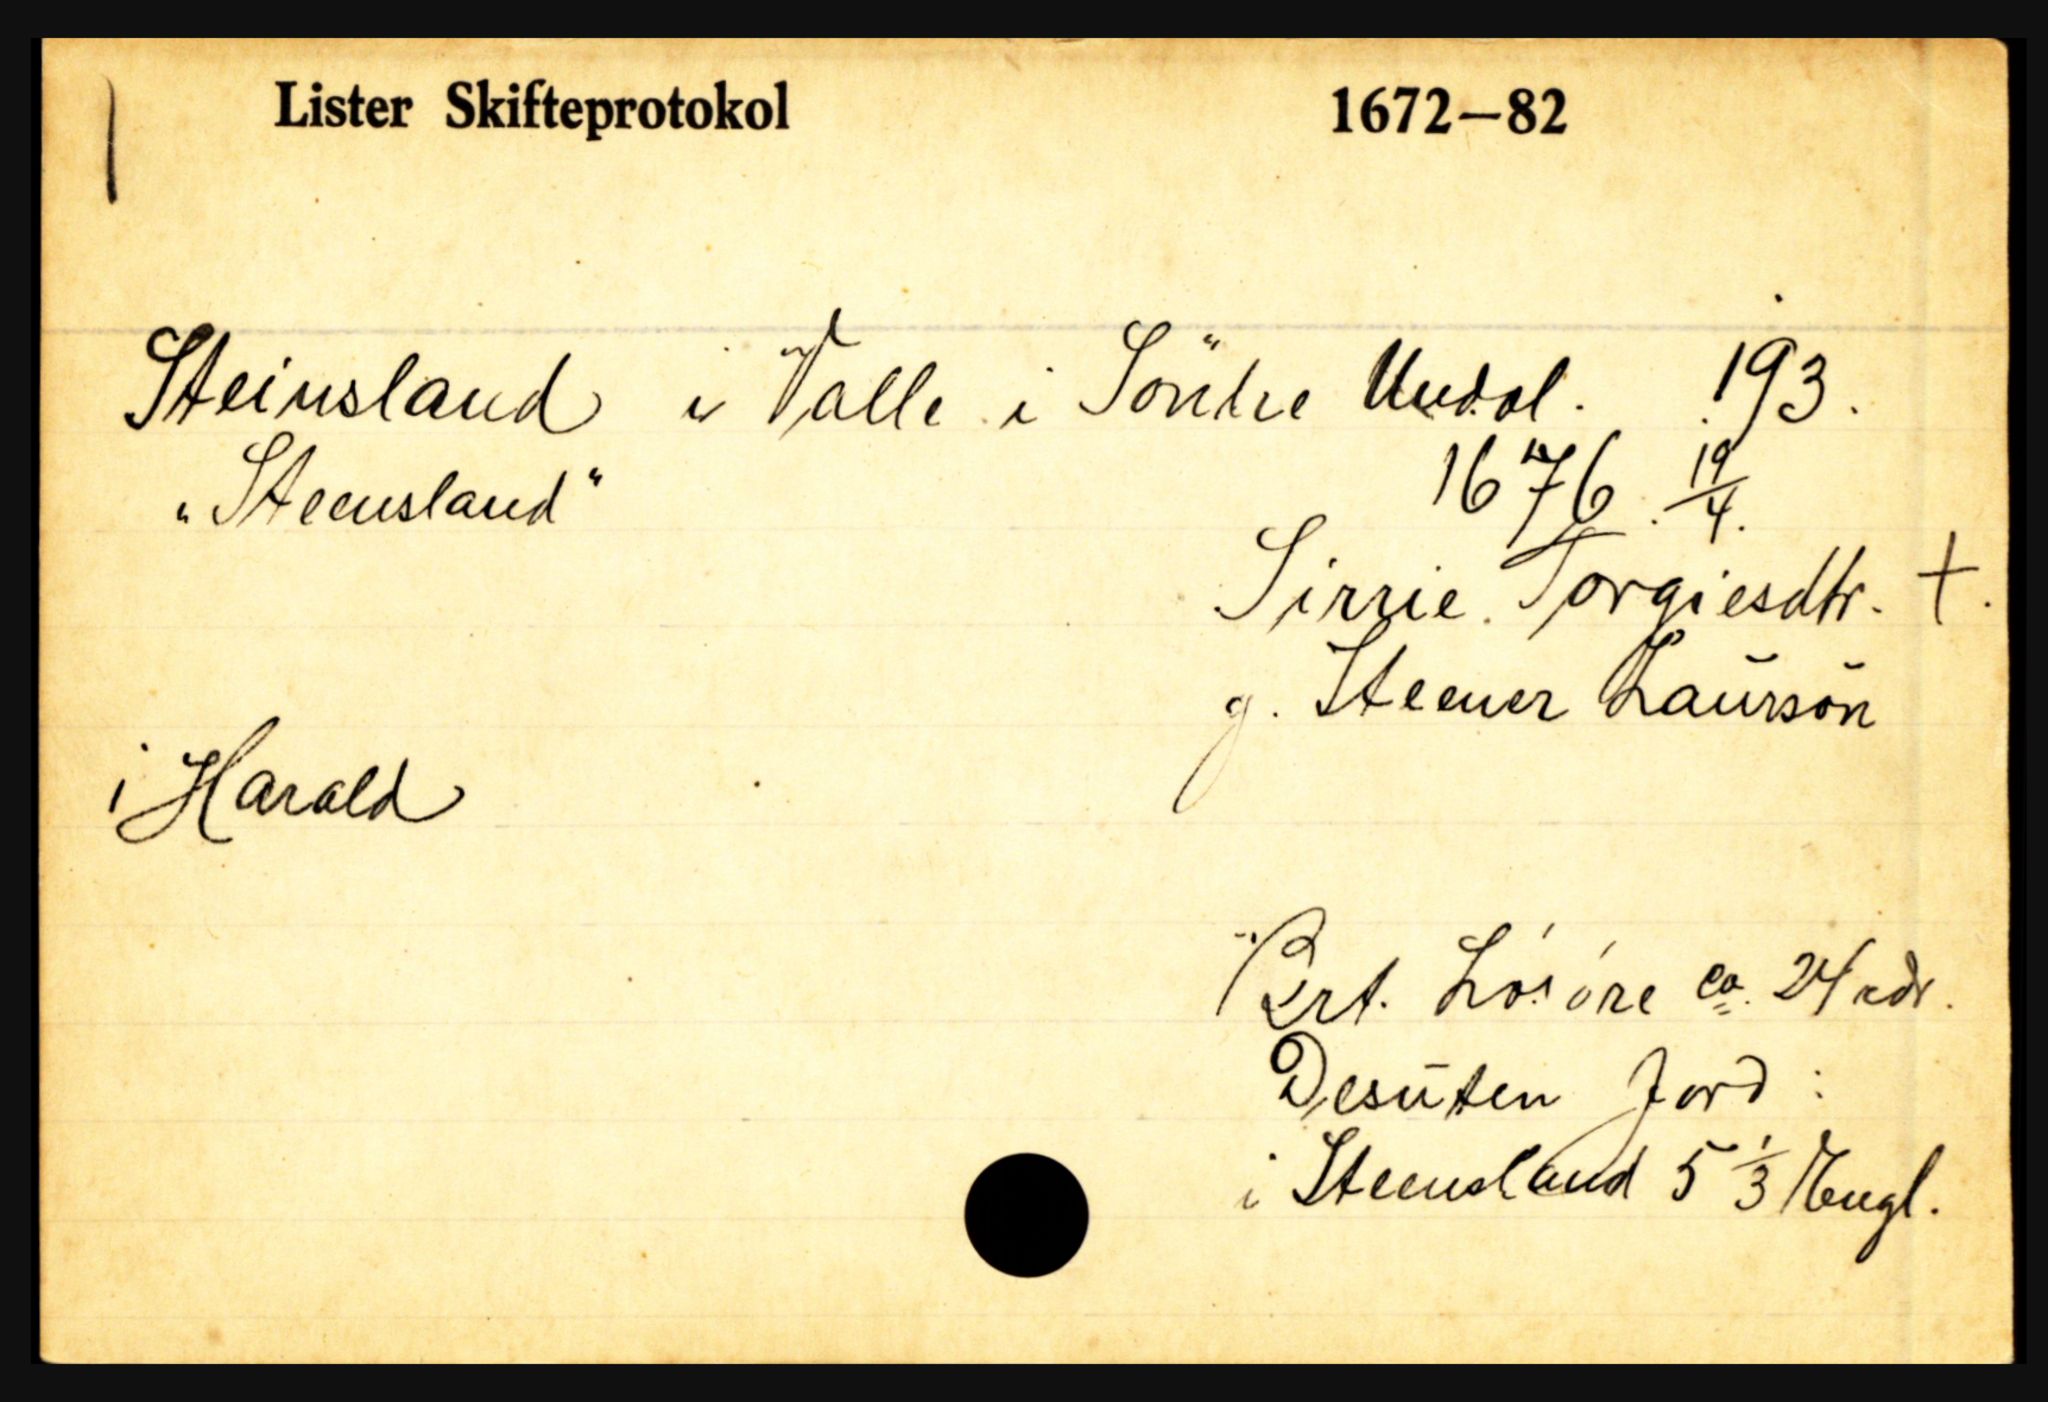 Lister Skifteprotokol 1672–82
Steinsland i Valle i Söndre Undal. 193.
"Steensland" 1676 19/4.
Sirrie Torgiesdtr. +.
g. Steener Laursön
i Harald
Brt. Løsøre ca. 24 rdr.
Desuten Jord :
i Steensland 5 1/3 Engl.